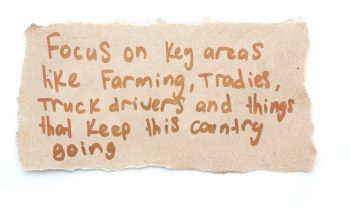 Focus on key areas
like Farming, Tradies,
Truck drivers and things
that keep this country
going